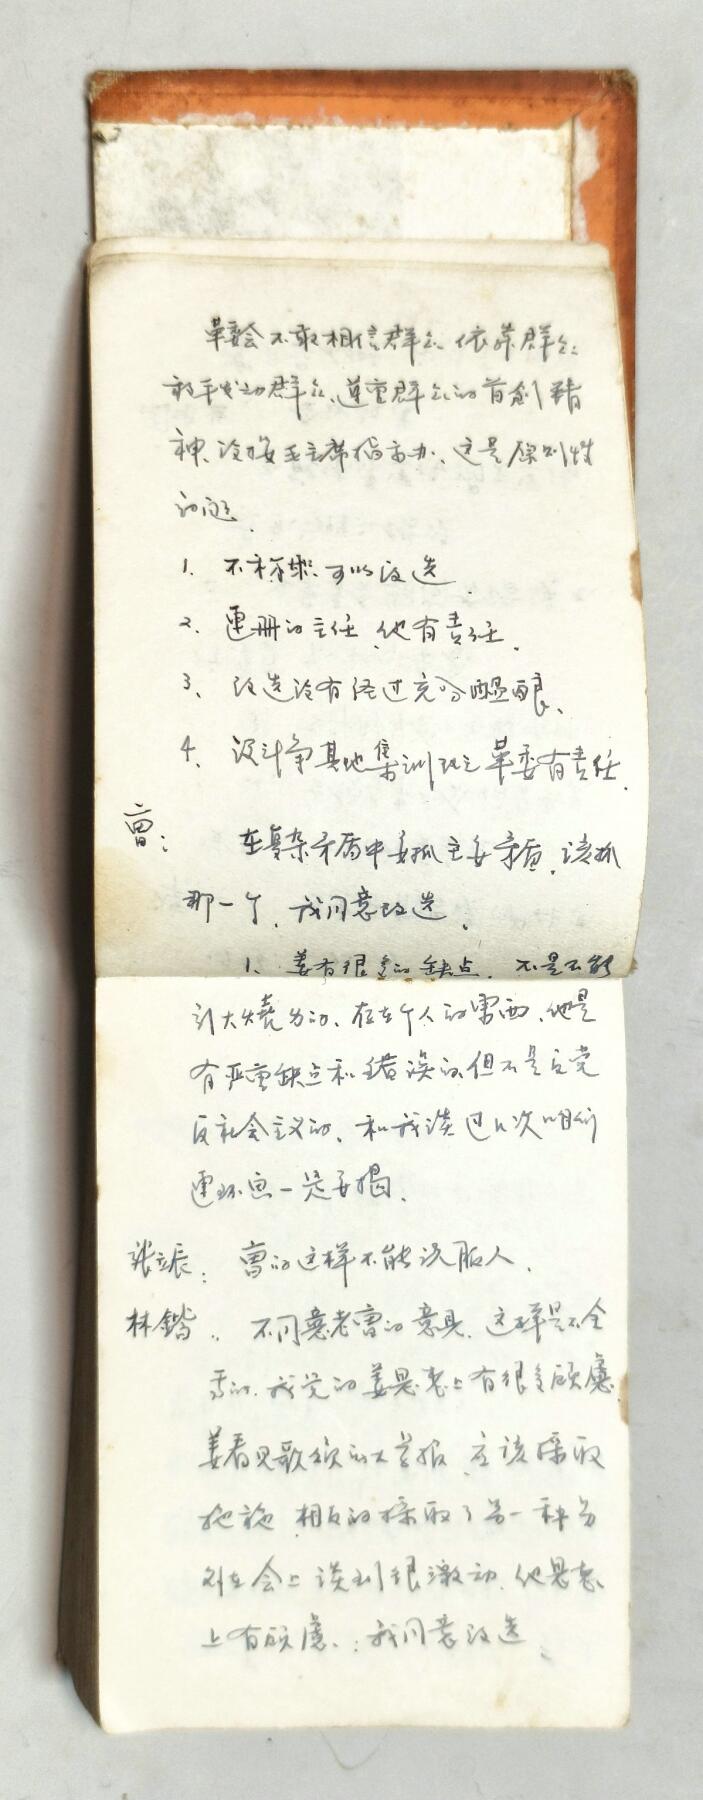 革委会不敢相信群众、依靠群众
放手发动群众、尊重群众的首创精
神、没按毛主席指示办、这是原则性
的问题.
1. 不称职可以改选.
2. 的主任、他有责任.
3、改选没有经过充分酝酿、
4. 革委有责任.
曹: 在复杂矛盾中要抓主要矛盾、该抓
那一个、我同意改选.
1、姜有很多的缺点、不是不能
在个人的东西、他是
有严重缺点和错误的但不是反党
反社会主义的、和我谈过几次咱们
一定要揭.
张立辰: 曹的这样不能说服人.
林锴: 不同意老曹的意见、这样是不全
面的、我觉的姜思想上有很多顾虑.
姜看见歌颂的大字报、应该采取
措施、相反的采取了另一种
会上谈到很激动、他思想
上有顾虑、: 我同意改选、